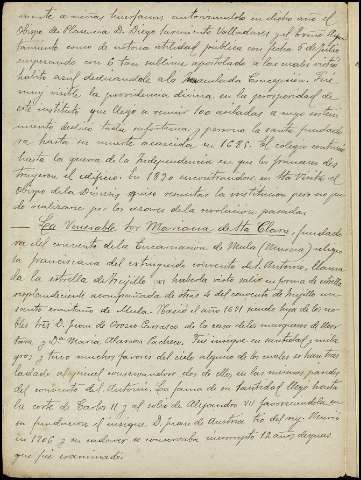 niente a niñas huérfanas autorizándolo en dicho año el
Obispo de Plasencia D. Diego Sarmiento Valladares y el Excmo Ayun
tamiento como de notoria utilidad pública con fecha 5 de julio
empezando con 6 tan sublime apostolado a las cuales vistió
hábito azul dedicándole a la Inmaculada Concepción. Fué
muy visible la providencia divina en la prosperidad de
este instituto que llegó a reunir 100 asiladas a cuyo soteni
miento dedicó toda su fortuna y persona la santa fundado
ra hasta su muerte acaecida en 1686. El colegio continuó
hasta la guerra de la independencia en que los franceses des
truyeron el edificio. En 1830 encontrándose en Sta Visita el
Obispo de la Diócesis quiso resucitar la institución pero no pu
do realizarse por los errores de la revolución pasada.
— La Venerable Sor Mariana de Sta Clara, fundado
ra del convento de la Encarnación de Mula (Murcia) religio
sa franciscana del extinguido convento de S. Antonio, llama
da la estrella de Trujillo por haberla visto salir en forma de estrella
resplandeciente acompañada de otras del convento de Trujillo un
santo ermitaño de Mula. Nació el año 1631 siendo hija de los no
bles tros D. Juan de Orozco Carrasco de la casa de los marqueses de Mor
tara y Dª María Alarcón Pacheco. Fué insigne en santidad y mila
gros y tuvo muchos favores del cielo algunos de los cuales se han tras
ladado al papel conservándose dos de ellos en las mismas paredes
del convento de S. Antonio. La fama de su santidad llegó hasta
la corte de Carlos II y al solio de Alejandro VII favoreciéndola en
su fundación el insigne D. Juan de Austria tío del rey. Murió
en 1706 y su cadáver se conservaba incorrupto 12 años después
que fué examinado